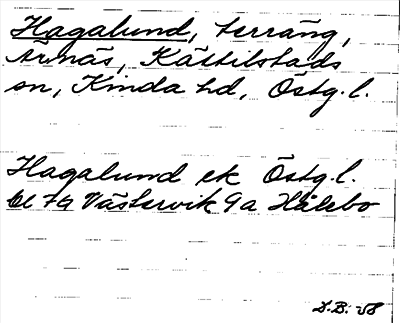 Hagalund, terräng,
Årnäs, Kättilstads
sn, Kinda hd, Östg. l.
Hagalund ek Östg. l.
bl 79 Västervik 9a Hålebo
S.B. -58